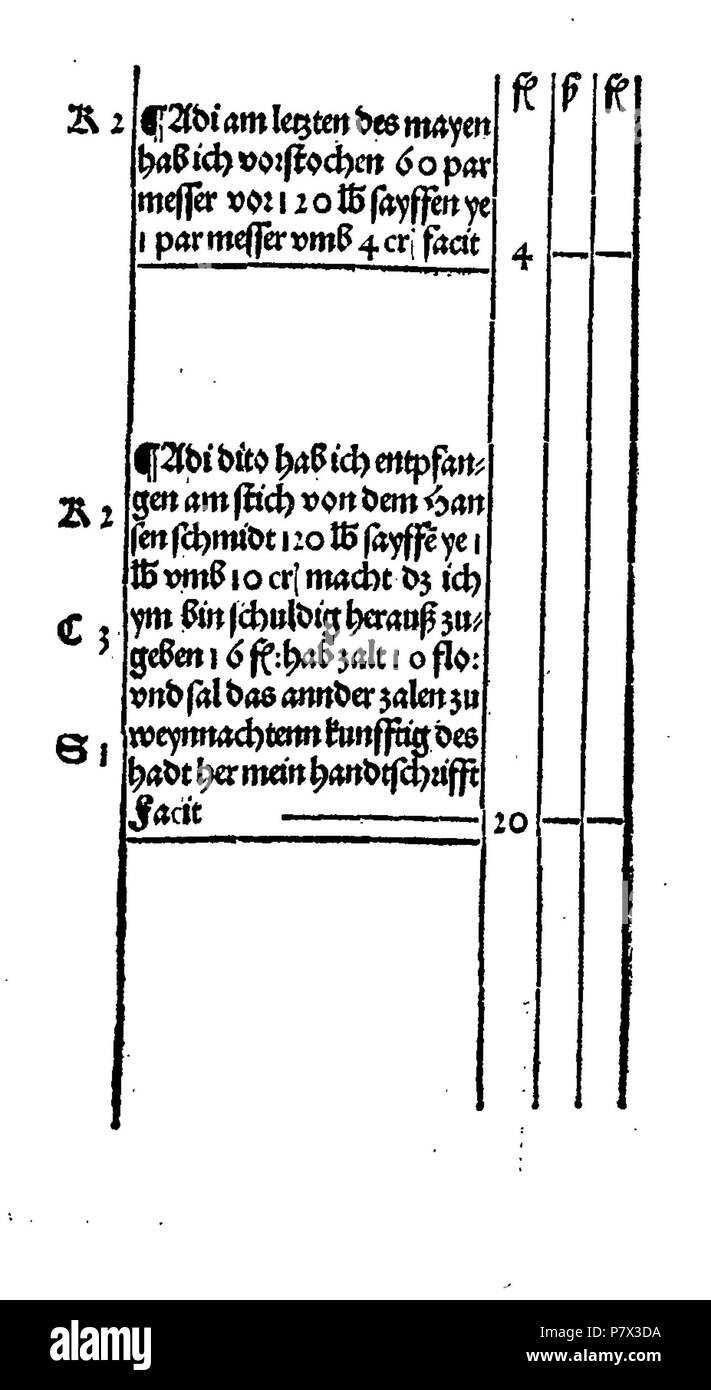 fl ß fl
K 2 ¶ Adi am letzten des mayen
hab ich vorstochen 60 par
messer vor 120 lb sayffen ye
1 par messer vmb 4 crj facit 4 — —
¶ Adi dito hab ich entpfan⸗
K 2 gen am stich von dem Han
sen schmidt 120 lb sayffē ye 1
lb vmb 10 crj macht dz ich
C 3 ym bin schuldig herauß zu⸗
geben 16 fl: hab zalt 10 flo:
vnd sal das annder zalen zu
S 1 weynnachtenn kunfftig des
hadt her mein handtschrifft
Facit 20 — —
alamy
Image ID: P7X3DA
www.alamy.com